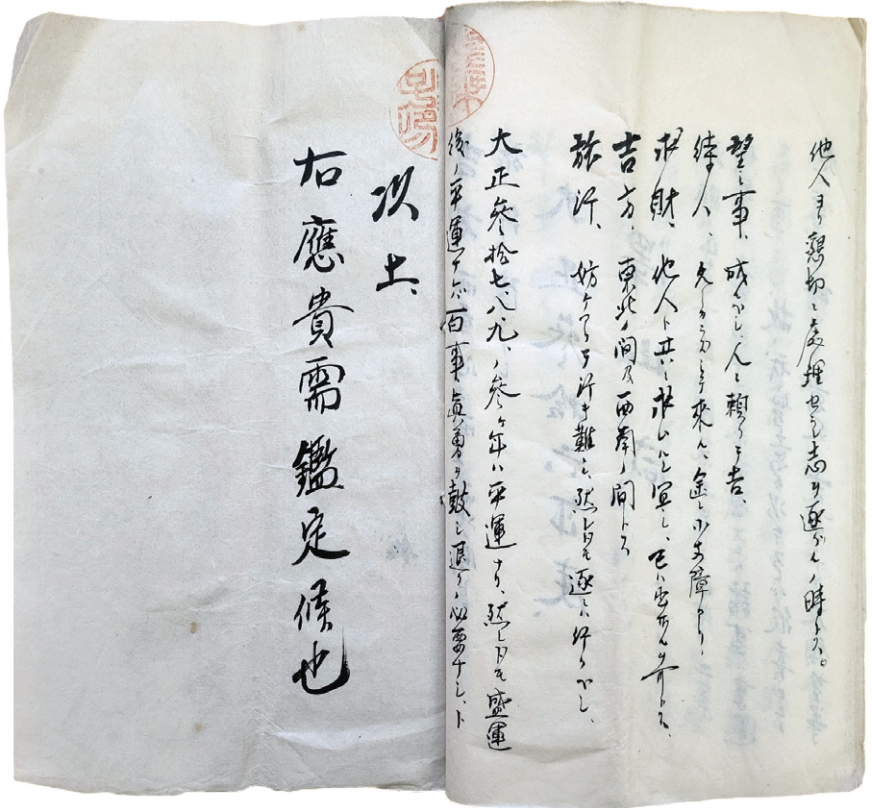 他人ヨリ懇切ニ處理セラレ志ヲ遂グルノ時トス。
望事、成ベシ、人ニ頼リテ吉、
待人、来ル、金ニ少支障アリ、
求財、他人ト共ニ求ムルヲ宜シ、
吉方、東北ノ間及西南ノ間トス
旅行、妨ゲアリテ行キ難シ、然レドモ遂ニ行クベシ、
大正參拾七、八、九、ノ參ケ年ハ平運ナリ、然レドモ盛運
後ノ平運ナレバ百事眞勇ヲ鼓シ退クノ必要ナシ、ト
以上、
右應貴需鑑定候也